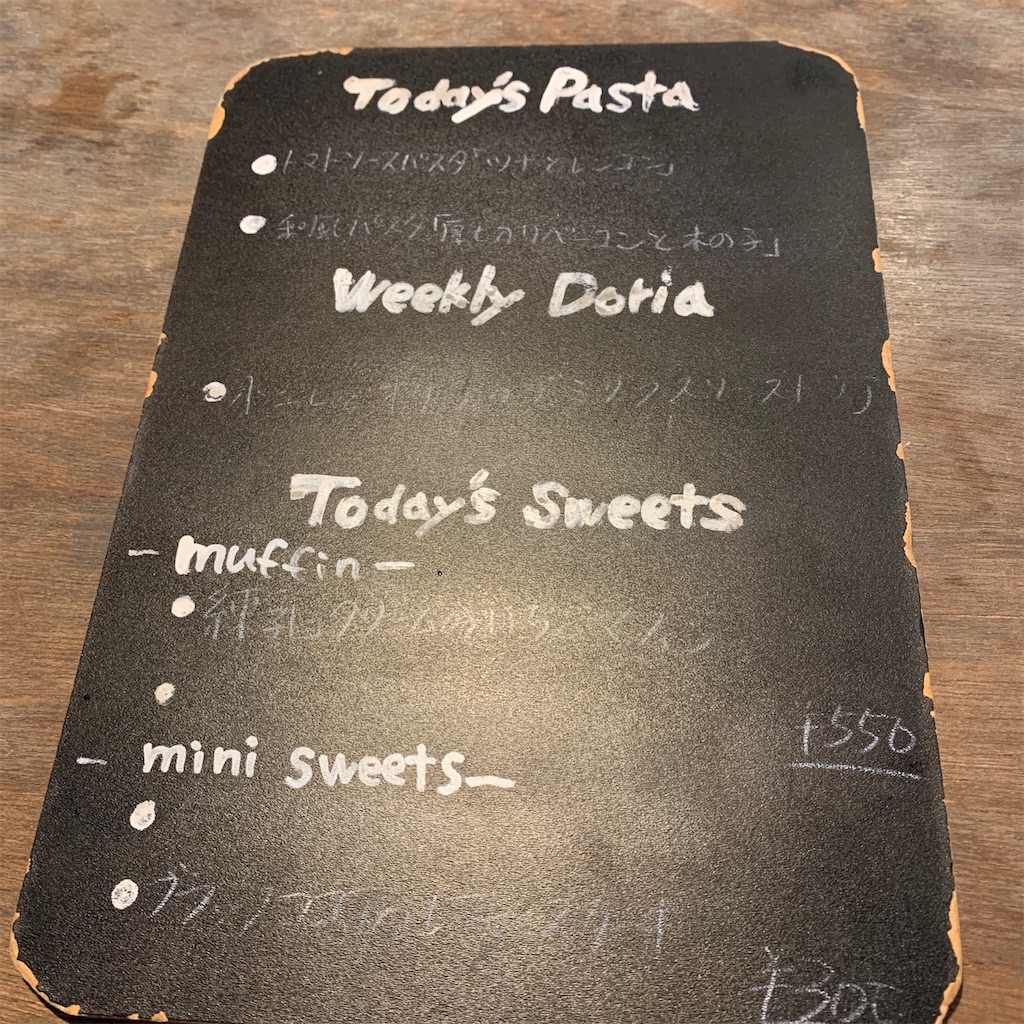 Today's Pasta
トマトソースパスタ「ツナとレンコン」
和風パスタ「厚切りベーコンと木の子」
Weekly Doria
Today's Sweets
- muffin -
練乳クリームのいちごマフィン
+550
- mini sweets -
+300